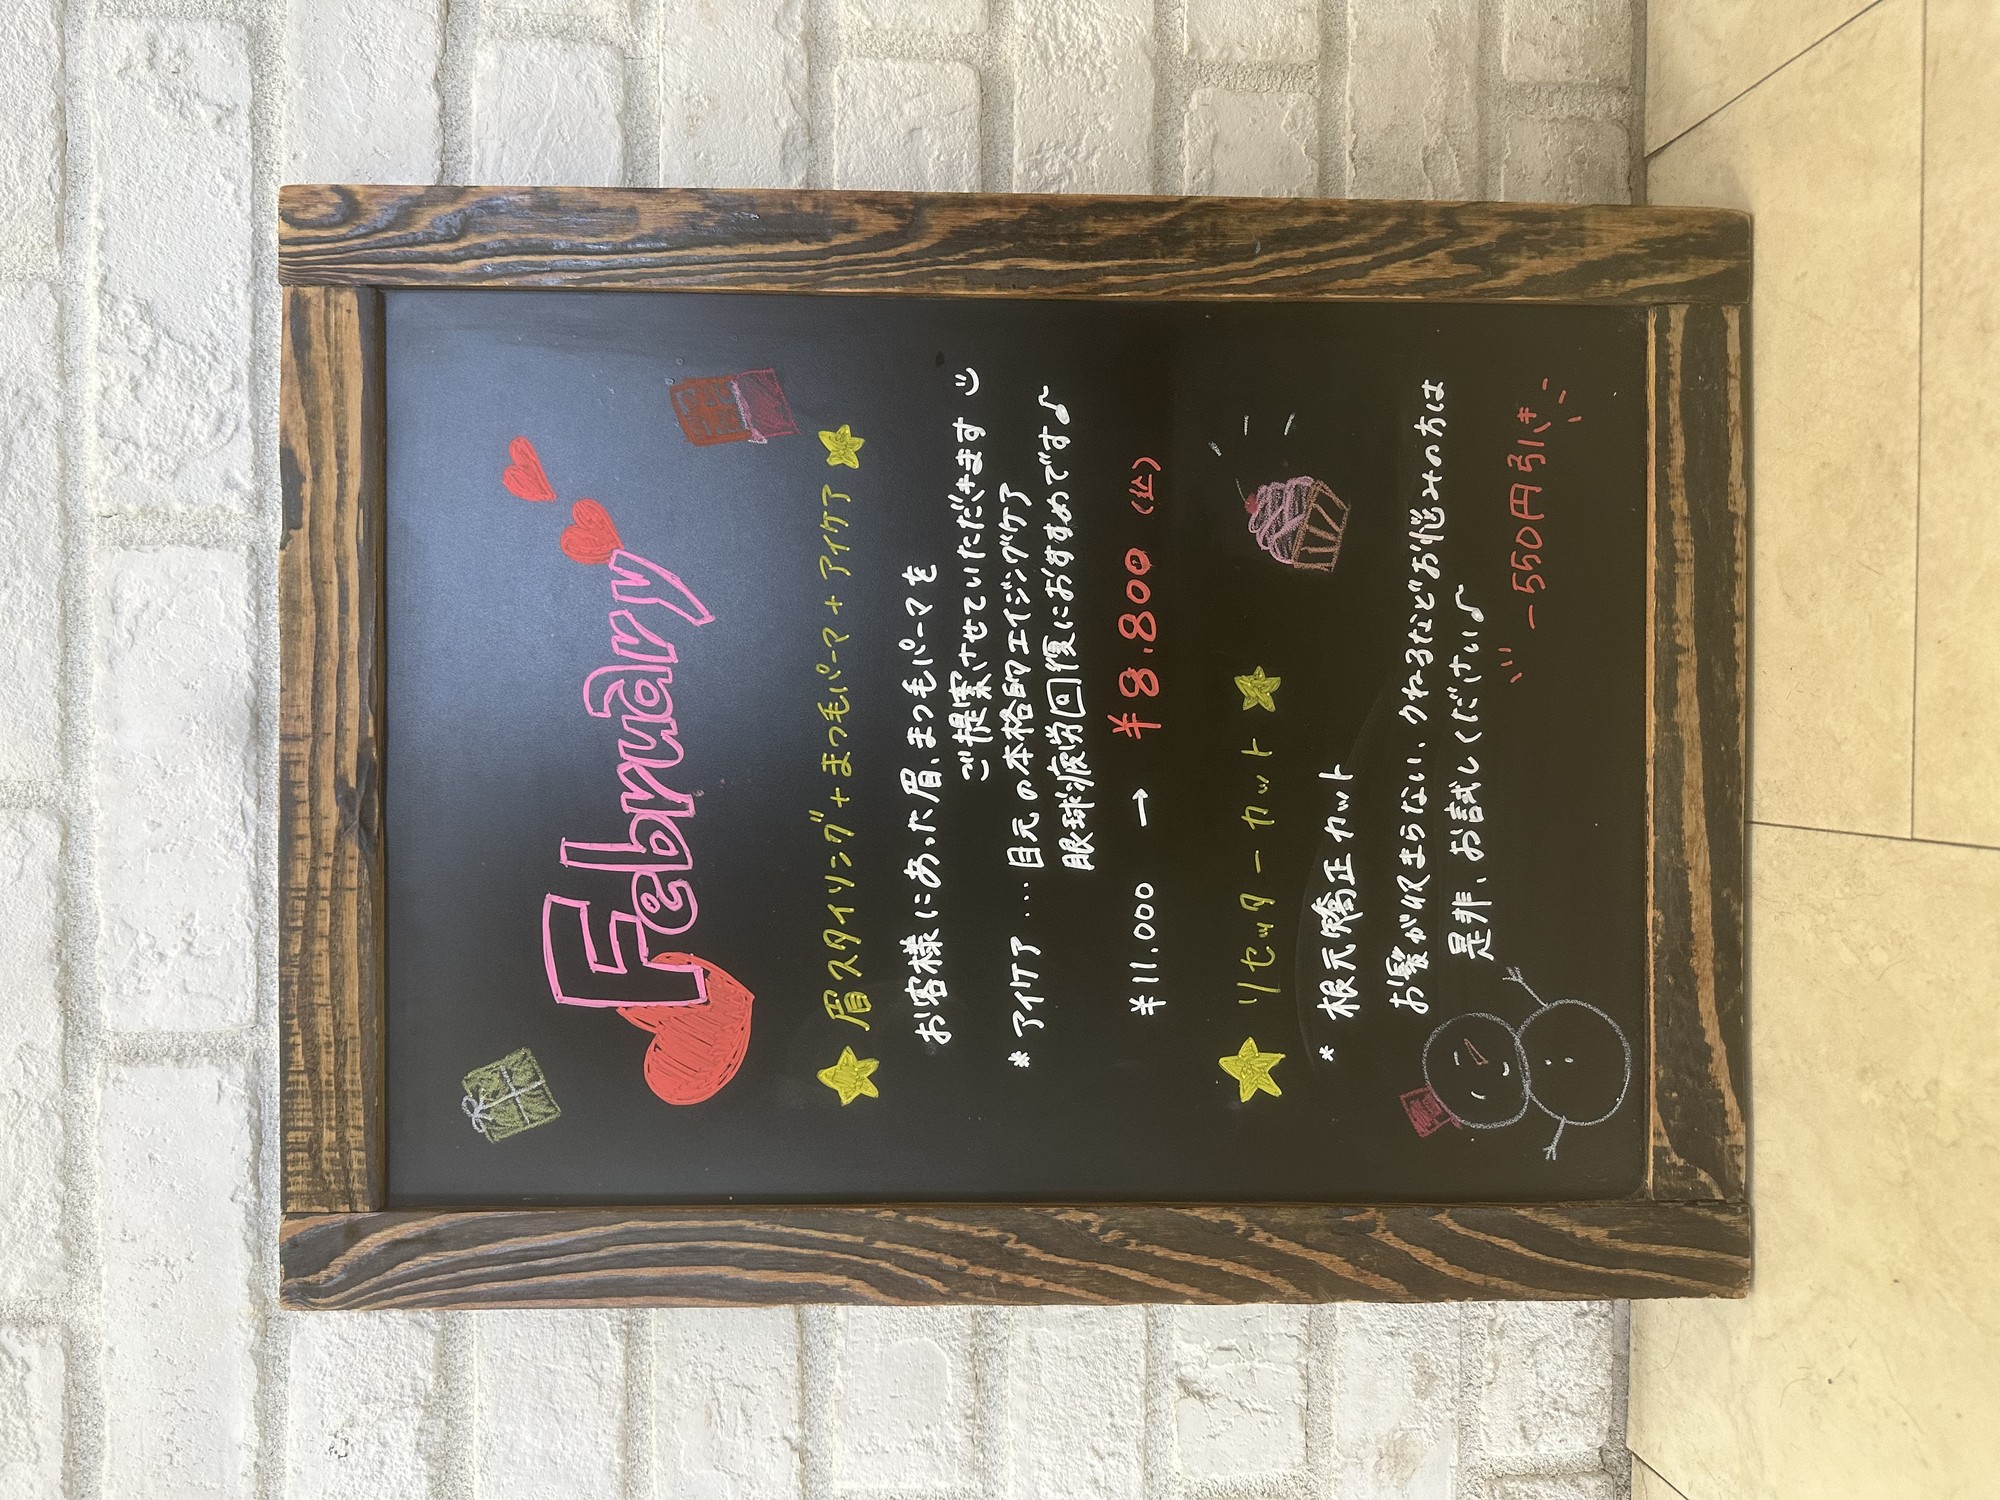 February
眉スタイリング+まつ毛パーマ+アイケア
お客様にあった眉、まつ毛パーマを
ご提案させていただきます
*アイケア…目元の本格的エイジングケア
眼球疲労回復におすすめです♪
¥11.000 → ¥8.800(込)
リセッターカット
* 根元矯正カット
お髪が収まらない、クねるなどお悩みの方は
是非、お試しくださいい♪
-550円引き